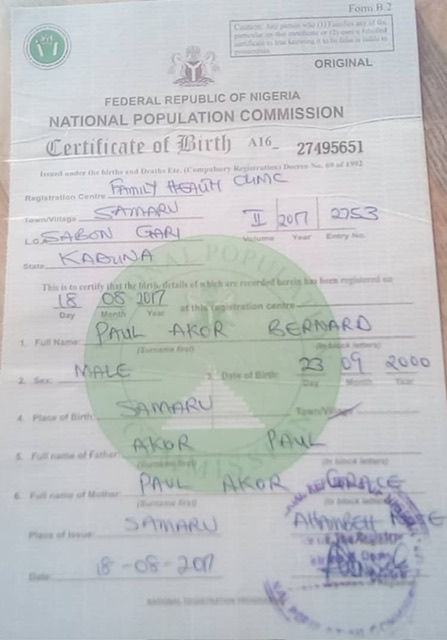 Form B.2
Caution: Any person who (1) Falsifies any of the
particular on this certificate or (2) uses a falsified
certificate as true knowing it to be false is liable to
prosecution
ORIGINAL
FEDERAL REPUBLIC OF NIGERIA
NATIONAL POPULATION COMMISSION
Certificate of Birth A16_ 27495651
Issued under the births and Deaths Etc. (Compulsory Registration) Decree No. 69 of 1992
Registration Centre FAMILY HEALTH CLINIC
Town/Village SAMARU
L.G. SABON GARI
II 2017 2753
Volume Year Entry No.
State KADUNA
This is to certify that the birth, details of which are recorded herein has been registered on
18 08 2017 at this registration centre
Day Month Year
1. Full Name: PAUL AKOR BERNARD
(Surname first) (In block letters)
2. Sex: MALE 3. Date of Birth: 23 09 2000
Day Month Year
4. Place of Birth: SAMARU Town/Village
5. Full name of Father: AKOR PAUL
(Surname first) (In block letters)
6. Full name of Mother: PAUL AKOR GRACE
(Surname first) (In block letters)
Place of Issue: SAMARU
Date: 18-08-2017